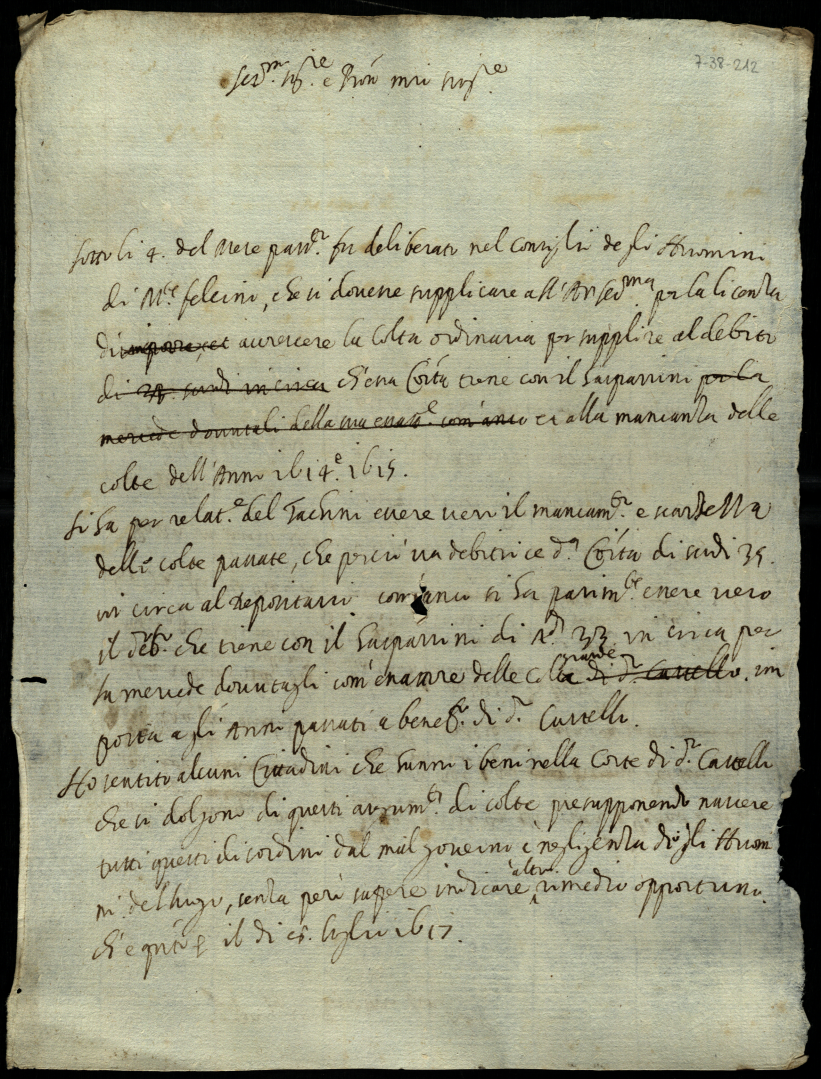 7-38-212
Ser.mi Sig.re e Pron mio sing.re
sotto li 4. del Mese pass.to fu deliberato nel Consiglio degli Huomini
di M.te felcino, che si dovesse supplicare all'An Ser.ma per la licenza
di accrescere la Colta ordinaria per supplire al debito
di scudi in circa ch'essa Co.ita tiene con il Gasparrini per la
mercede dovutali della sua esatt.e com'anco et alla mancanza delle
colte dell'Anno 1614. e 1615.
Si ha per relat.e del Tachini essere vero il mancam.to e scarsezza
delle colte passate, che perciò va debitrice d.a Co.ita di scudi 35.
in circa al depositario com'anco si ha parim.te essere vero
il deb.to che tiene con il Gasparrini di 33 in circa per
sua mercede dovutagli com'esattore delle colte di d.o Castello. im
posta agli Anni passati a benef.o di d.o Castello.
Ho sentito alcuni Cittadini che hanno i beni nella Corte di d.o Castello
che si dolgono di questi accrescim.ti di colte presupponendo nascere
tutti questi disordini dal mal governo e negligenza degli Huomi
ni del lugo, senza però sapere indicare altro rimedio opportuno.
ch'è q.to il di luglio 1617.